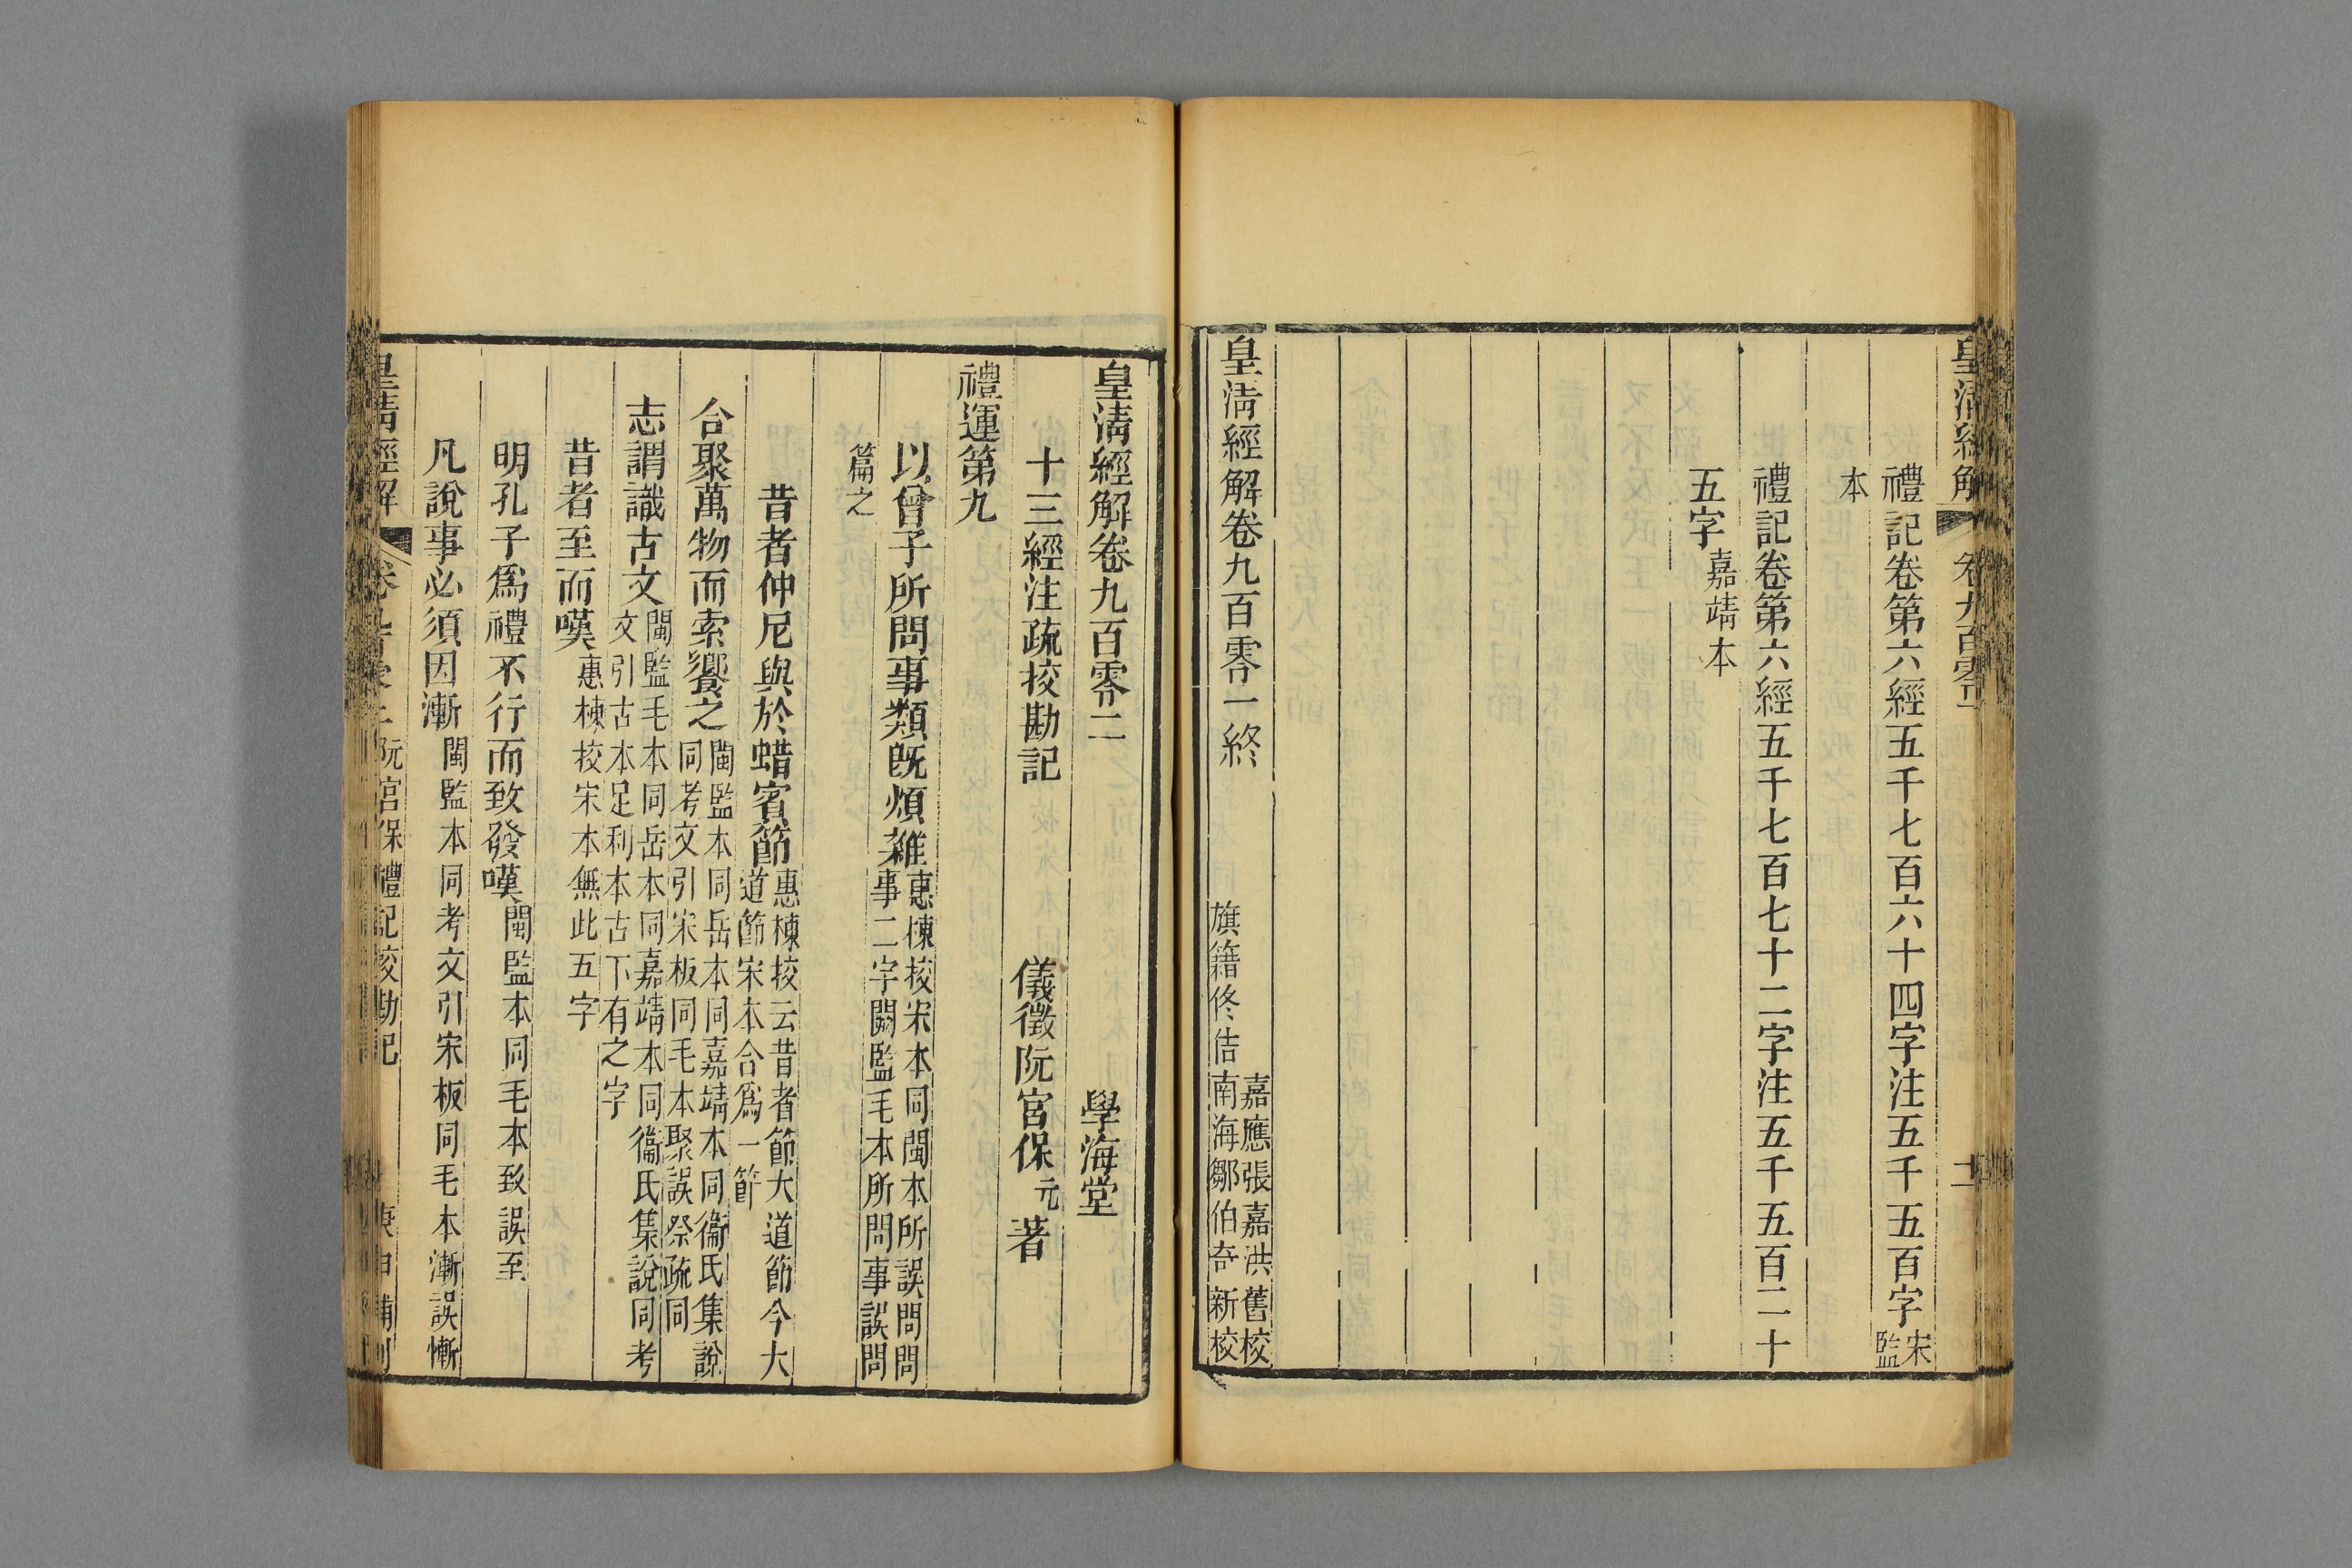 皇清經解
卷九百零一
十二
禮記卷第六經五千七百六十四字注五千五百字宋監
本
禮記卷第六經五千七百七十二字注五千五百二十
五字嘉靖本
皇清經解卷九百零一終
嘉應張嘉洪舊校
旗籍佟佶
南海鄒伯奇新校
皇清經解卷九百零二
學海堂
十三經注疏挍勘記
儀徵阮宮保元著
禮運第九
以曾子所問事類旣煩雜惠棟挍宋本同閩本所誤問問
事二字闕監毛本所問事誤問
篇之
昔者仲尼與於蜡賓節惠棟挍云昔者節大道節今大
道節宋本合爲一節
合聚萬物而索饗之閩監本同岳本同嘉靖本同衞氏集說
同考文引宋板同毛本聚誤祭疏同
志謂識古文閩監毛本同岳本同嘉靖本同衞氏集說同考
文引古本足利本古下有之字
昔者至而嘆惠棟挍宋本無此五字
明孔子爲禮不行而致發嘆閩監本同毛本致誤至
凡說事必須因漸閩監本同考文引宋板同毛本漸誤慚
皇清經解
卷九百零二
阮宮保禮記校勘記
庚申補刊